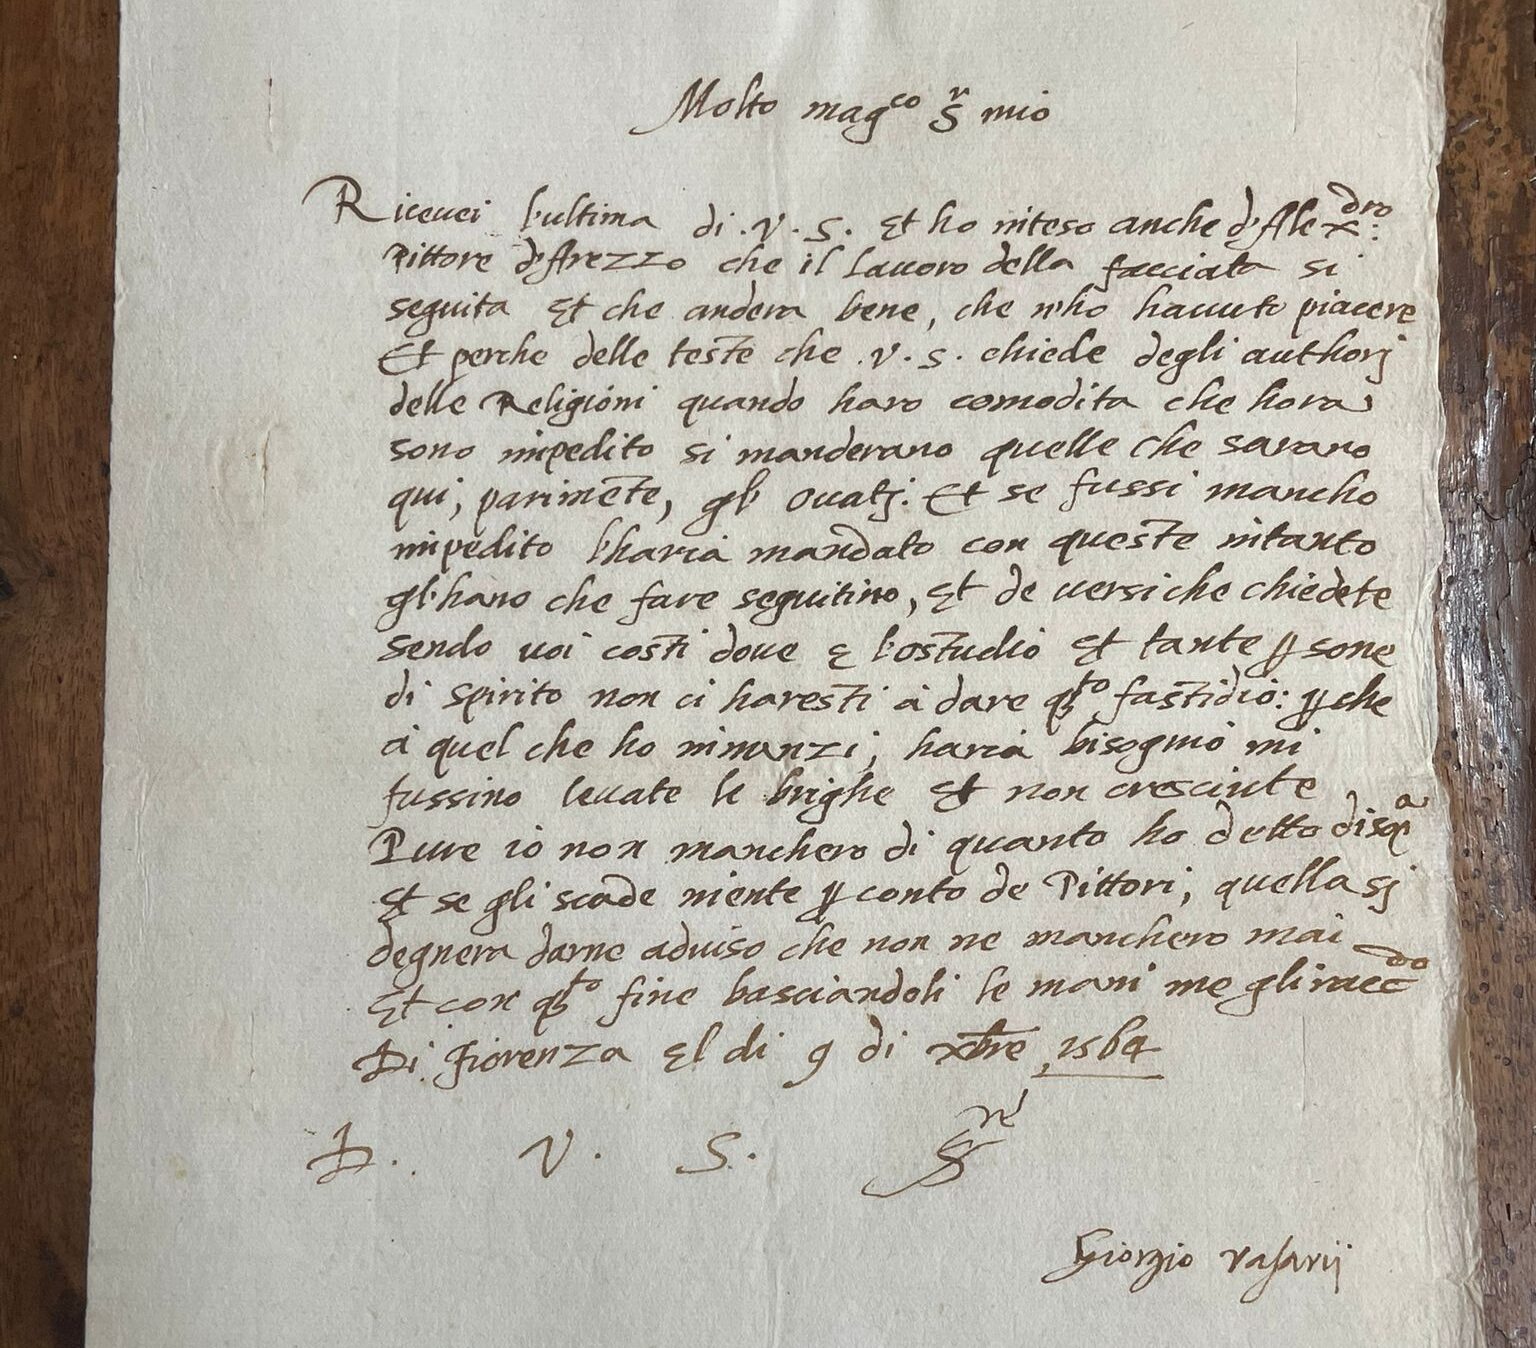 Molto mag.co S.r mio
Riceuei l'ultima di .V.S. et ho inteso anche d'Alexdro:
Pittore d'Arezzo che il lauoro della facciata si
seguita et che andera bene, che n'ho hauuto piacere
Et perche delle teste che .V.S. chiede degli authorj
delle Religioni quando haro comodita che hora
sono impedito si manderano quelle che sarano
qui, parimēte, gl' ouatj. Et se fussi mancho
impedito l'haria mandato con queste intanto
gl'hano che fare seguitino, et de uersi che chiedete
sendo uoi costi doue e lo studio et tante ꝑsone
di spirito non ci haresti à dare q̃sto fastidio: ꝑche
à quel che ho ninanzi, haria bisognio mi
fussino leuate le brighe et non cresciute
Pure io non manchero di quanto ho detto di sq.a
et se gli scade niente ꝑ conto de Pittori, quella sj
degnera darne aduiso che non ne manchero mai
Et con q̃sto fine basciandoli le mani me gli racdo
Di Fiorenza el di 9 di xbre 1564
D. V. S. S.re
Giorgio Vasarij